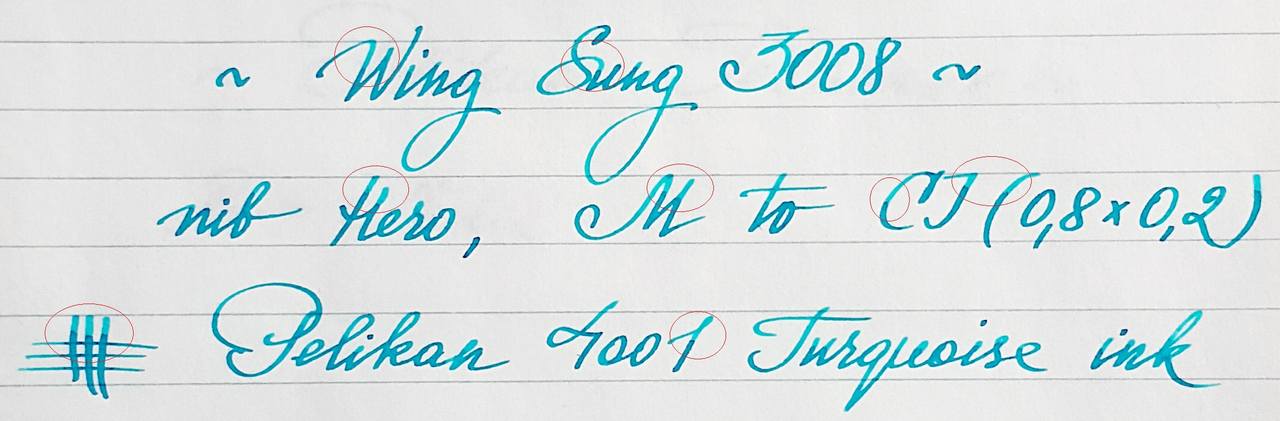 ~ Wing Sung 3008 ~
nib Hero, M to CI (0,8 x 0,2)
Pelikan 4001 Turquoise ink